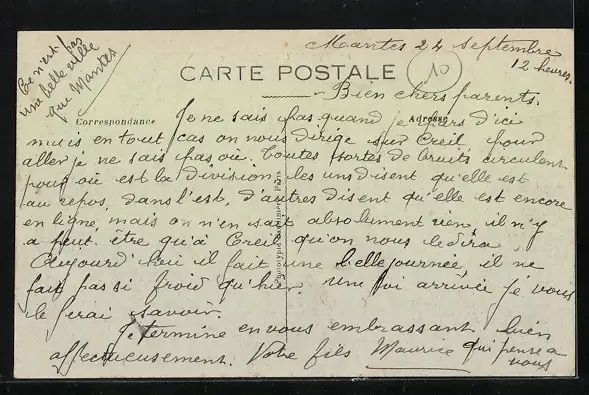 Ce n'est pas
une belle ville
que Mantes
Mantes 24 septembre
12 heures.
CARTE POSTALE
10
Bien chers parents.
Correspondance
Adresse
Je ne sais pas quand je pars d'ici
mais en tout cas on nous dirige sur Creil, pour
aller je ne sais pas où. Toutes sortes de bruits circulent
pour où est la division les uns disent qu'elle est
au repos, dans l'est, d'autres disent qu'elle est encore
en ligne, mais on n'en sait absolument rien, il n'y
a peut être qu'à Creil qu'on nous le dira.
Aujourd'hui il fait une belle journée, il ne
fait pas si froid qu'hier. Une fois arrivée je vous
le ferai savoir.
Je termine en vous embrassant bien
affectueusement. Votre fils Maurice qui pense a
vous
Paris